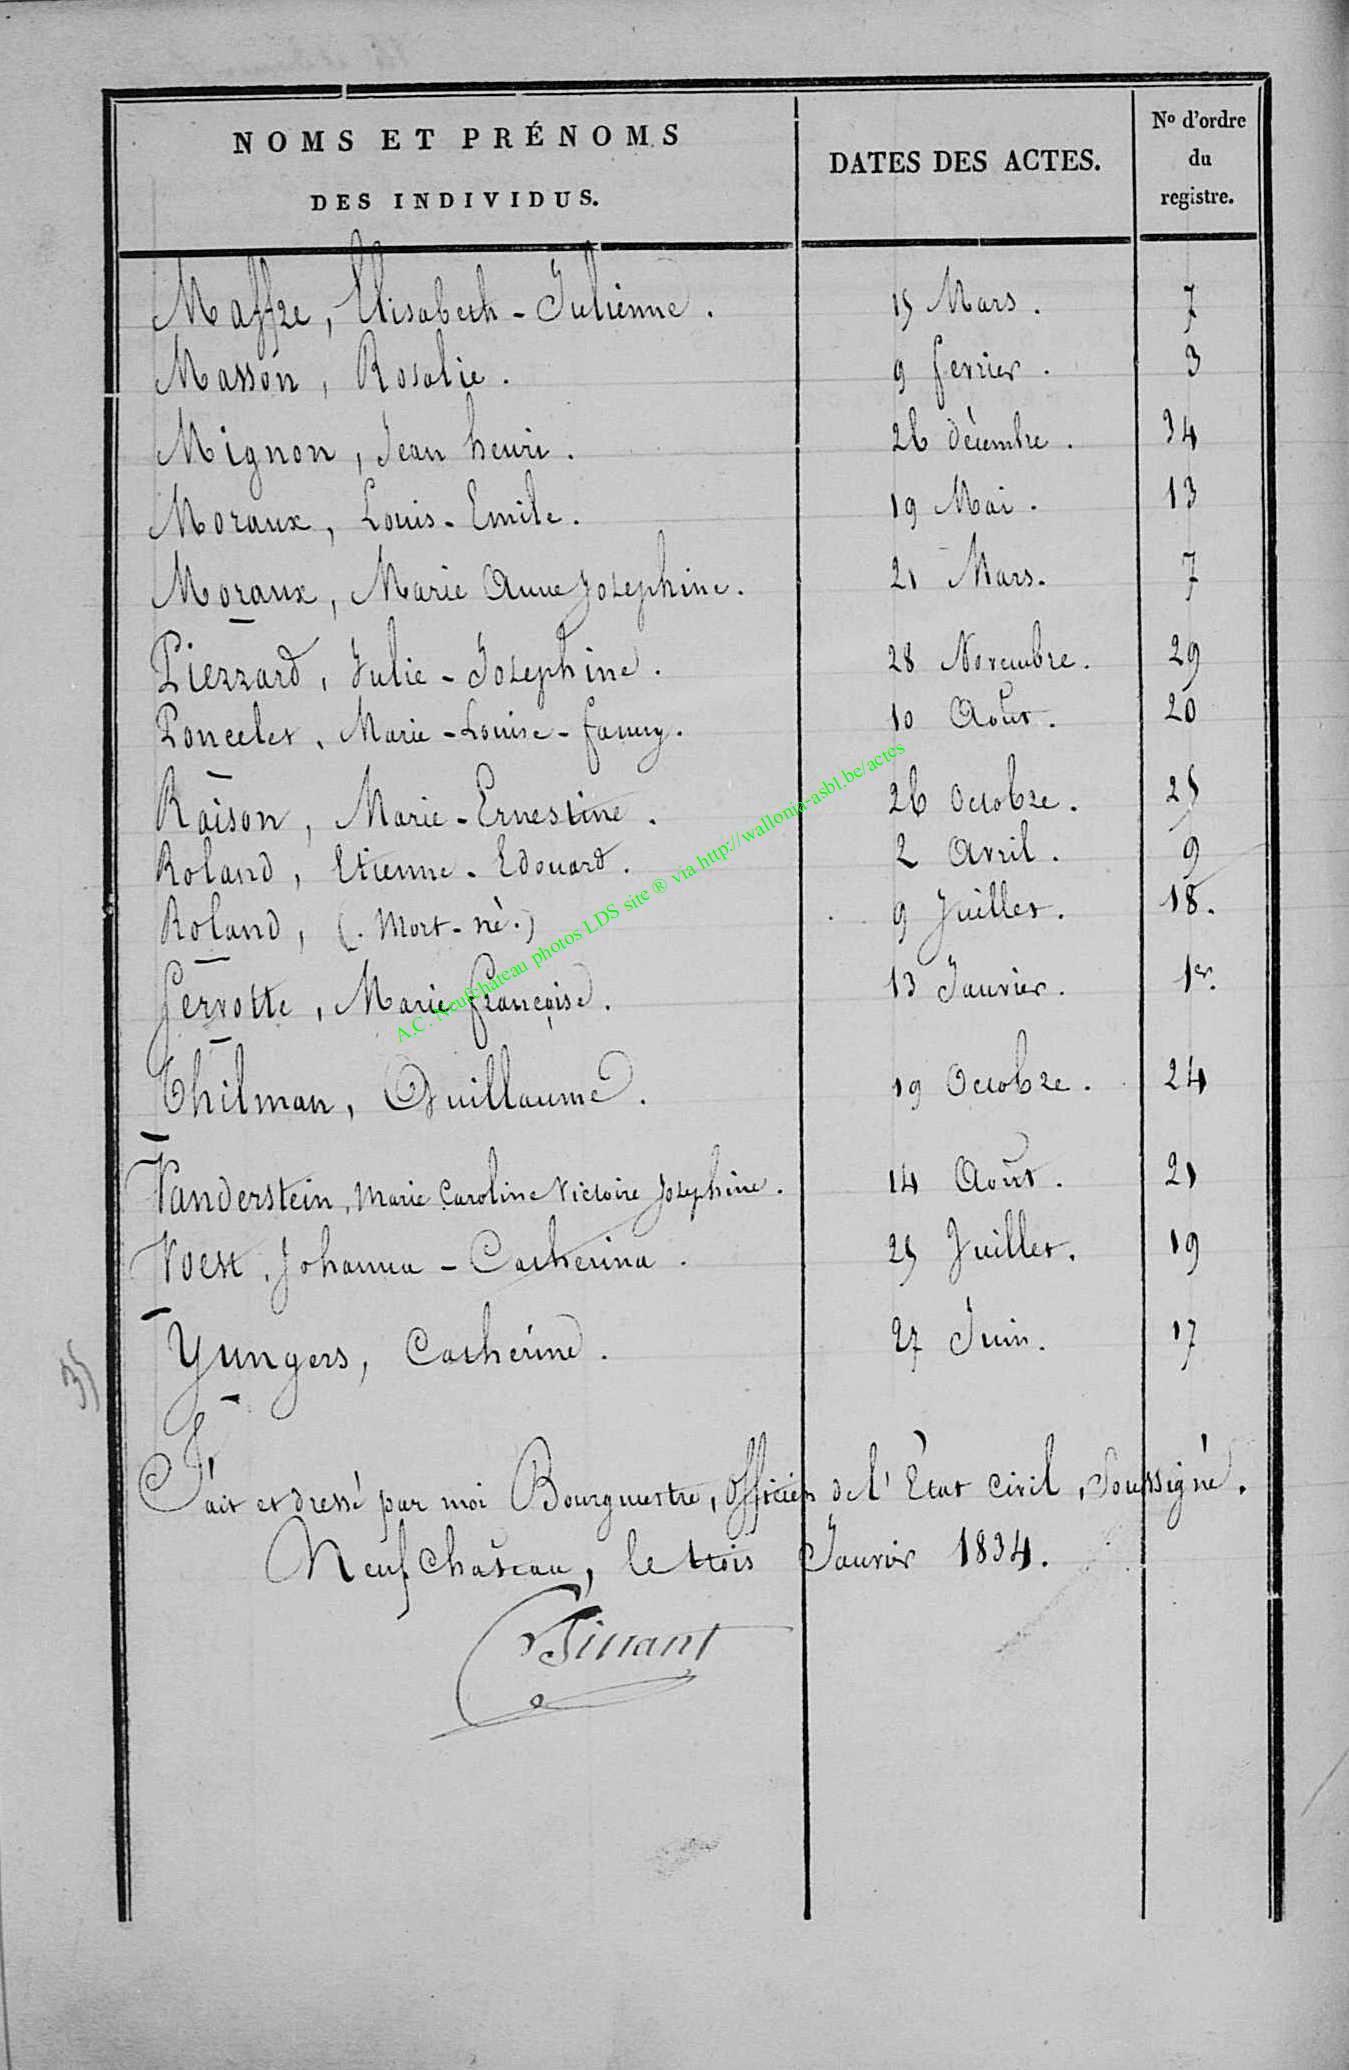 NOMS ET PRÉNOMS
DES INDIVIDUS.
DATES DES ACTES.
No d'ordre
du
registre.
Maffre, Elisabeth - Julienne. 15 Mars. 7
Masson, Rosalie. 9 fevrier. 3
Mignon, Jean henri. 26 décembre. 34
Moraux, Louis - Emile. 19 Mai. 13
Moraux, Marie Anne Josephine. 21 Mars. 7
Pierrard, Julie - Josephine. 28 Novembre. 29
Poncelet, Marie - Louise - fanny. 10 Août. 20
Raison, Marie - Ernestine. 26 Octobre. 25
Roland, Etienne - Edouard. 2 Avril. 9
Roland, (. Mort - né.) 9 Juillet. 18.
Servotte, Marie françoise. 13 Janvier. 1er.
Thilman, Guillaume. 19 Octobre. 24
Vanderstein, Marie Caroline Victoire Josephine. 14 Août. 21
Voest, Johanna - Catherina. 25 Juillet. 19
Yungers, Catherine. 27 Juin. 17
35
Fait et dressé par moi Bourgmestre, officier de l'État civil, Soussigné.
Neufchâteau, le trois Janvier 1834.
A.C. Neufchâteau photos LDS site ® via http://wallonia-asbl.be/actes